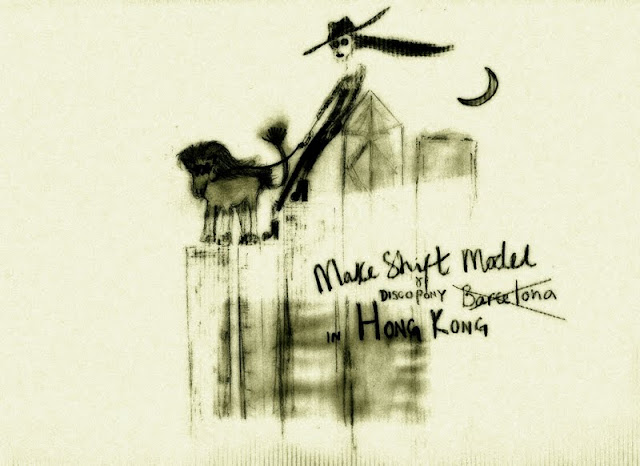 Make Shift Model
y
DISCOPONY Barcelona
IN HONG KONG